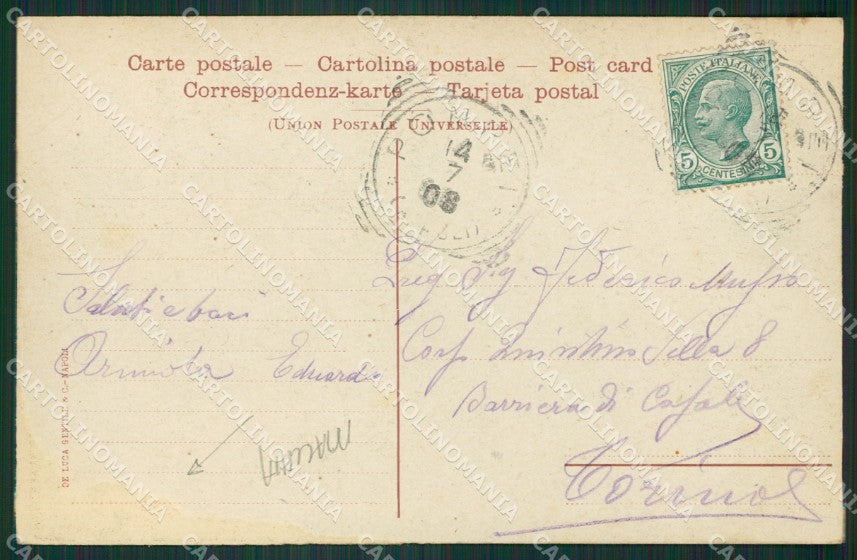 Carte postale — Cartolina postale — Post card
Correspondenz-karte — Tarjeta postal
(UNION POSTALE UNIVERSELLE)
POSTE ITALIANE
5 5
CENTESIMI
POMPEI
14
7
08
Saluti e baci
Eduardo
Federico
Quintino Sella 8
Barriera di Casale
Torino
DE LUCA GENTILE & C.-NAPOLI
CARTOLINOMANIA